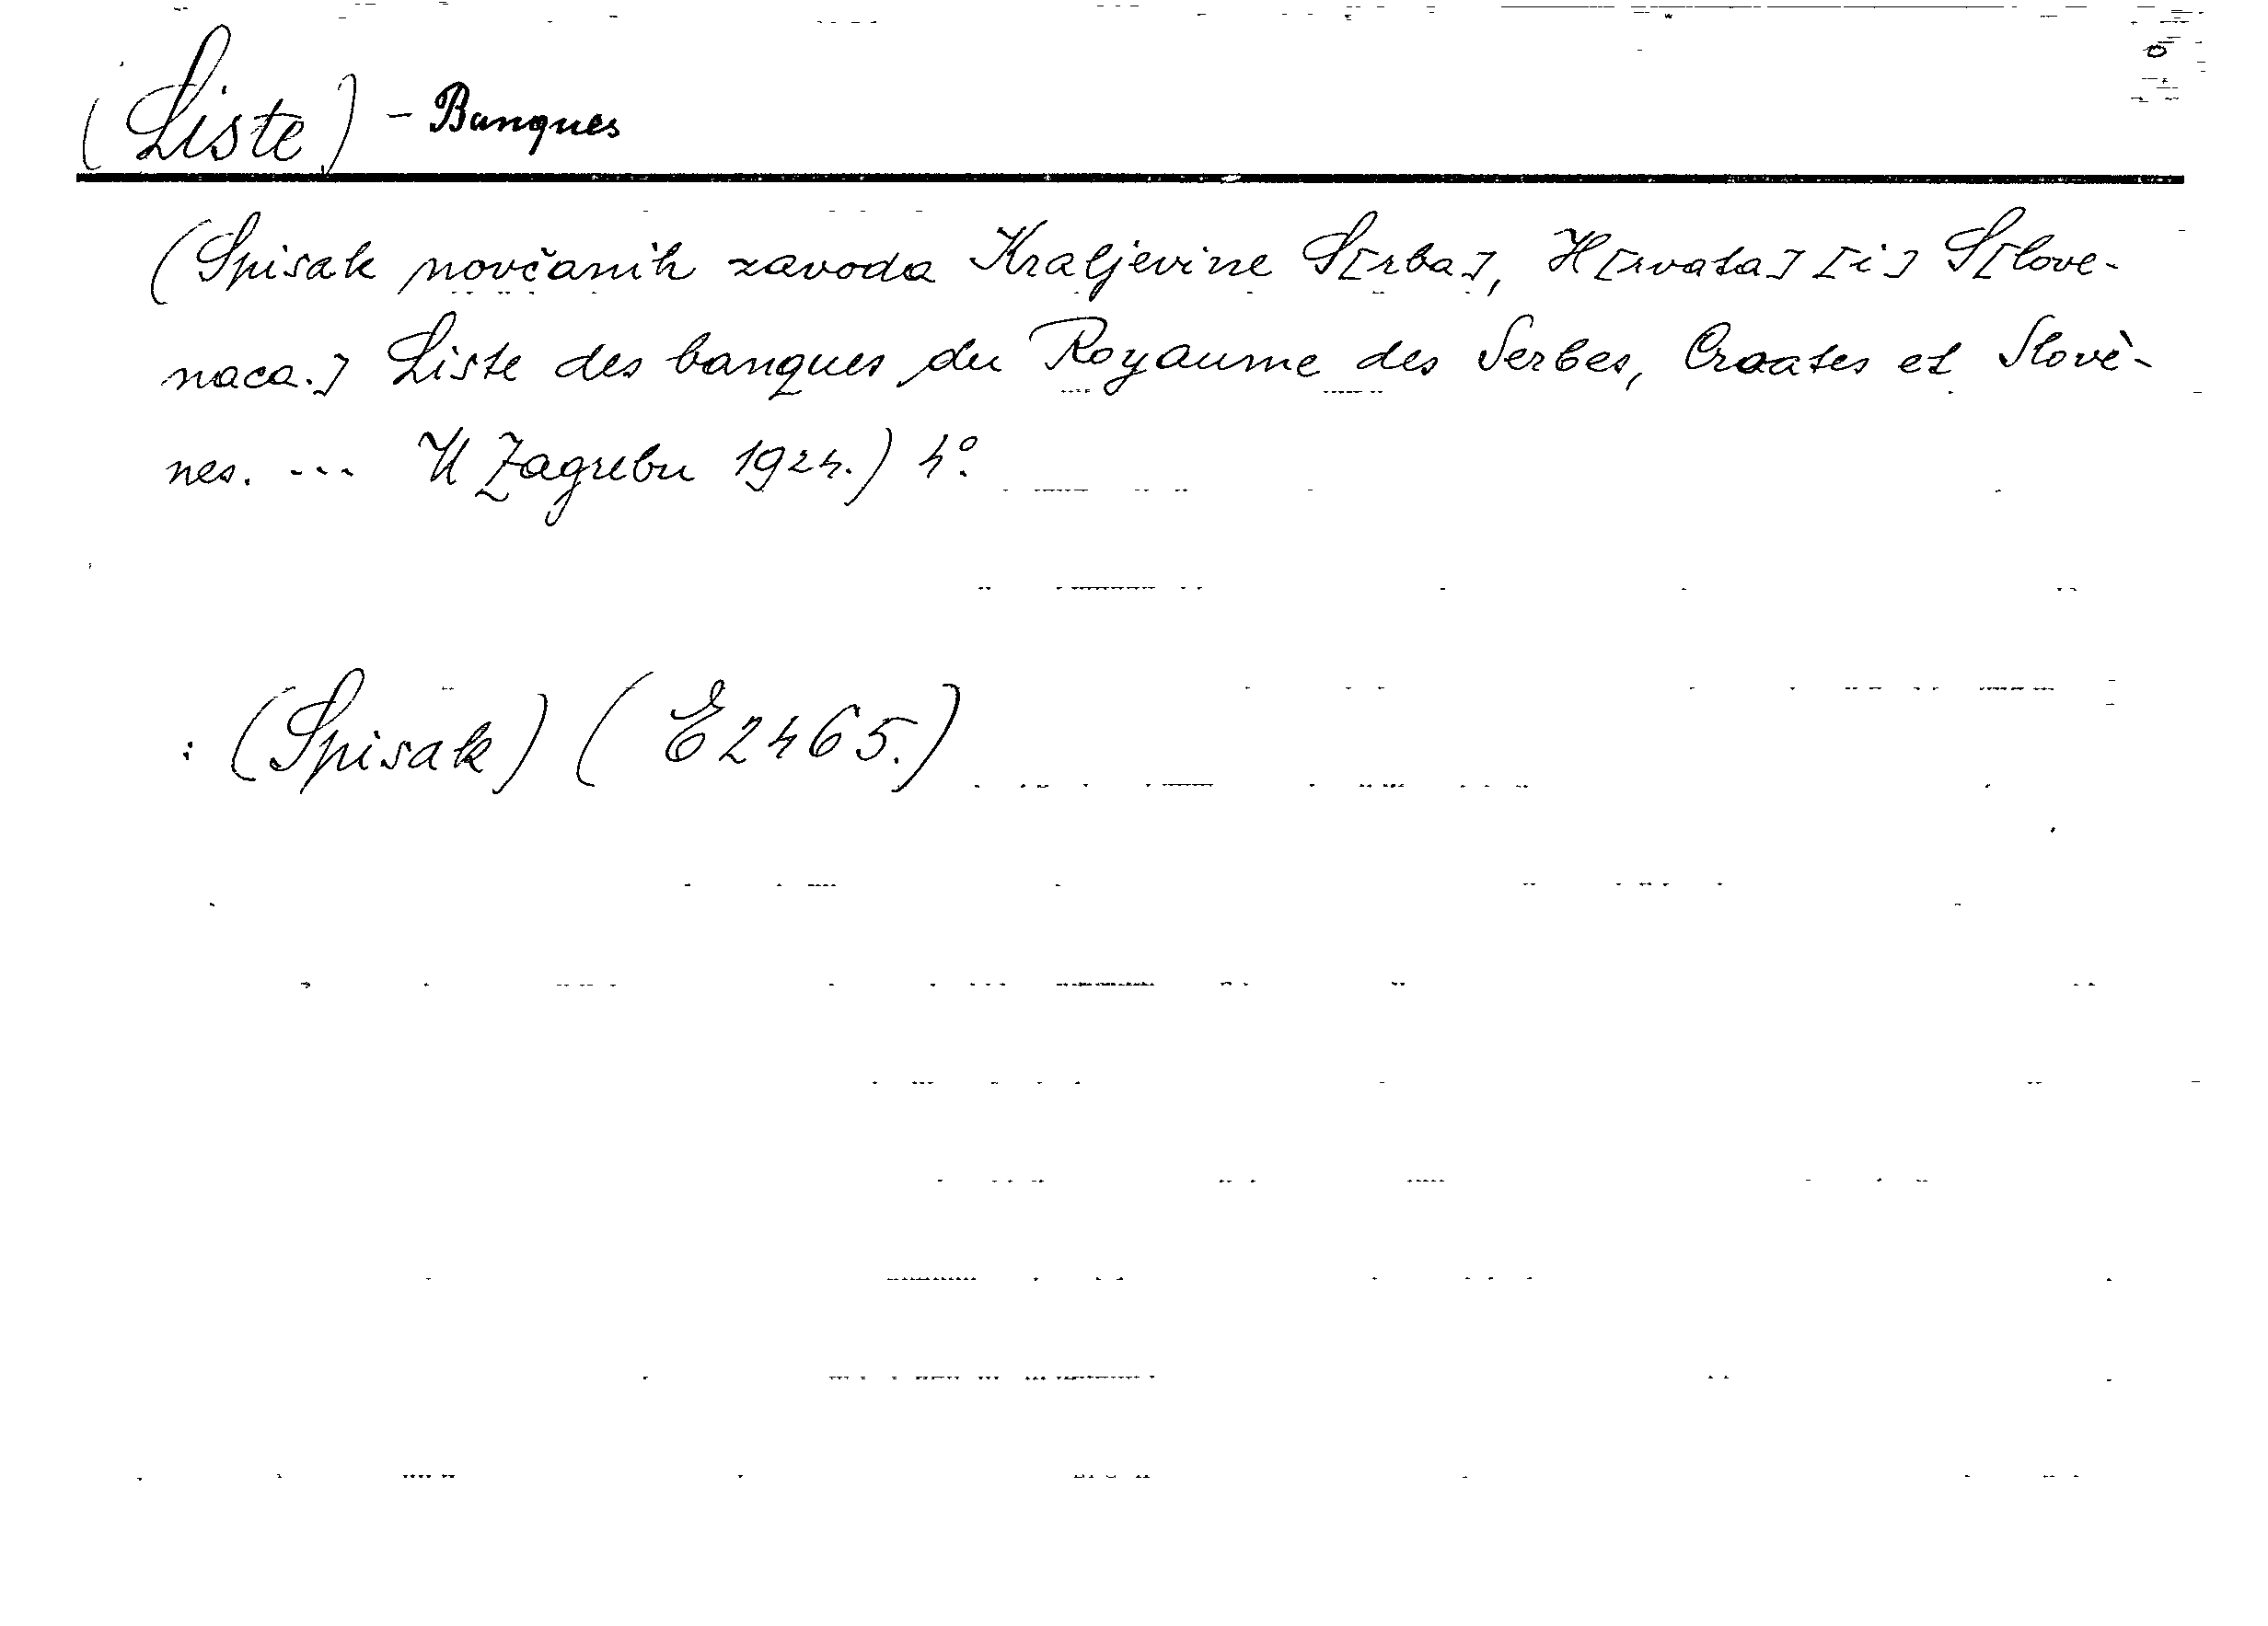 (Liste) - Banques
(Spisak novčanih zavoda Kraljevine S[rba], H[rvata] [i] S[love-
naca.] Liste des banques du Royaume des Serbes, Croates et Slovè-
nes. ... U Zagrebu 1924.) 4°.
: (Spisak) (E2465.)